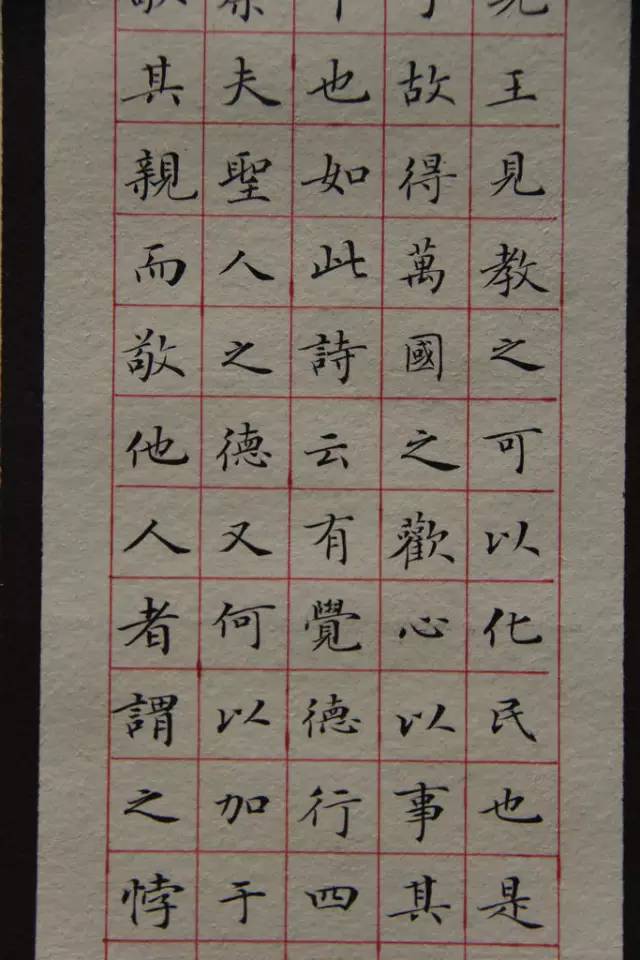 王見教之可以化民也是
故得萬國之歡心以事其
也如此詩云有覺德行四
夫聖人之德又何以加于
其親而敬他人者謂之悖